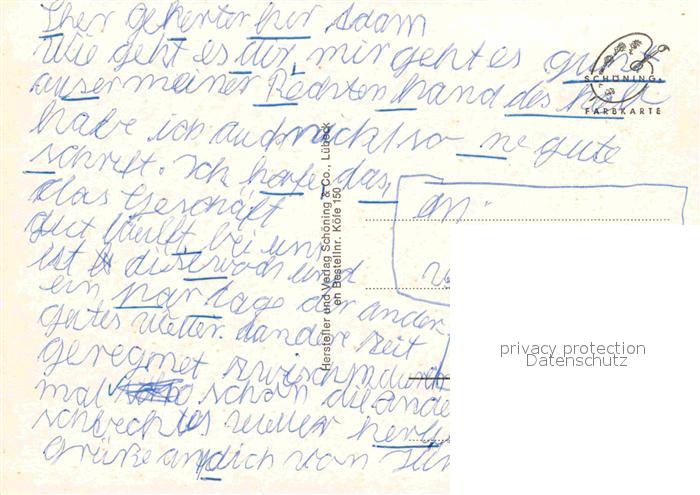 Sher geherter her Adam
Wie geht es dir mir geht es gut
auser meiner Rechten hand des halb
habe ich auch nicht so ne gute
schrift. Ich hofe, das,
das Geschäft
gut läuft, bei uns
ist es diese woch und
ein par tage der ander
gutes wetter. dandere zeit
geregnet zwischndurch
mal schon die ande
schlechtes wetter
grüße an dich von
an:
SCHÖNING &
FARBKARTE
Hersteller und Verlag Schöning & Co., Lübeck
en Bestellnr. Köfe 150
privacy protection
Datenschutz